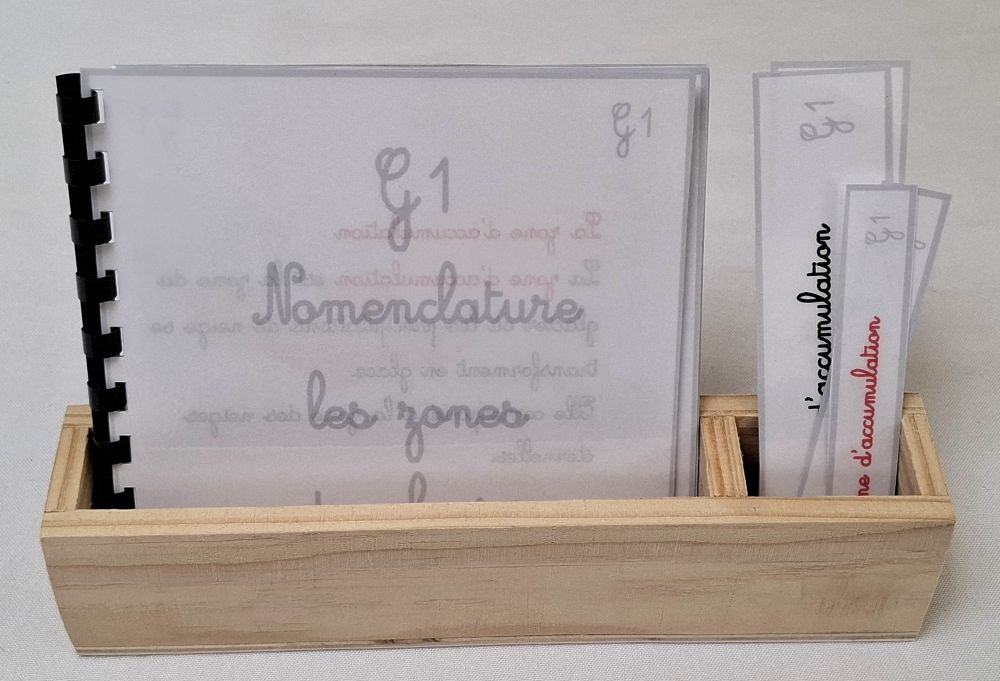 G1
G1
Nomenclature
les zones
La zone d'accumulation
La zone d'accumulation est la zone du
transforment en glace.
Elle des neiges
éternelles.
G1
d'accumulation
G1
ne d'accumulation